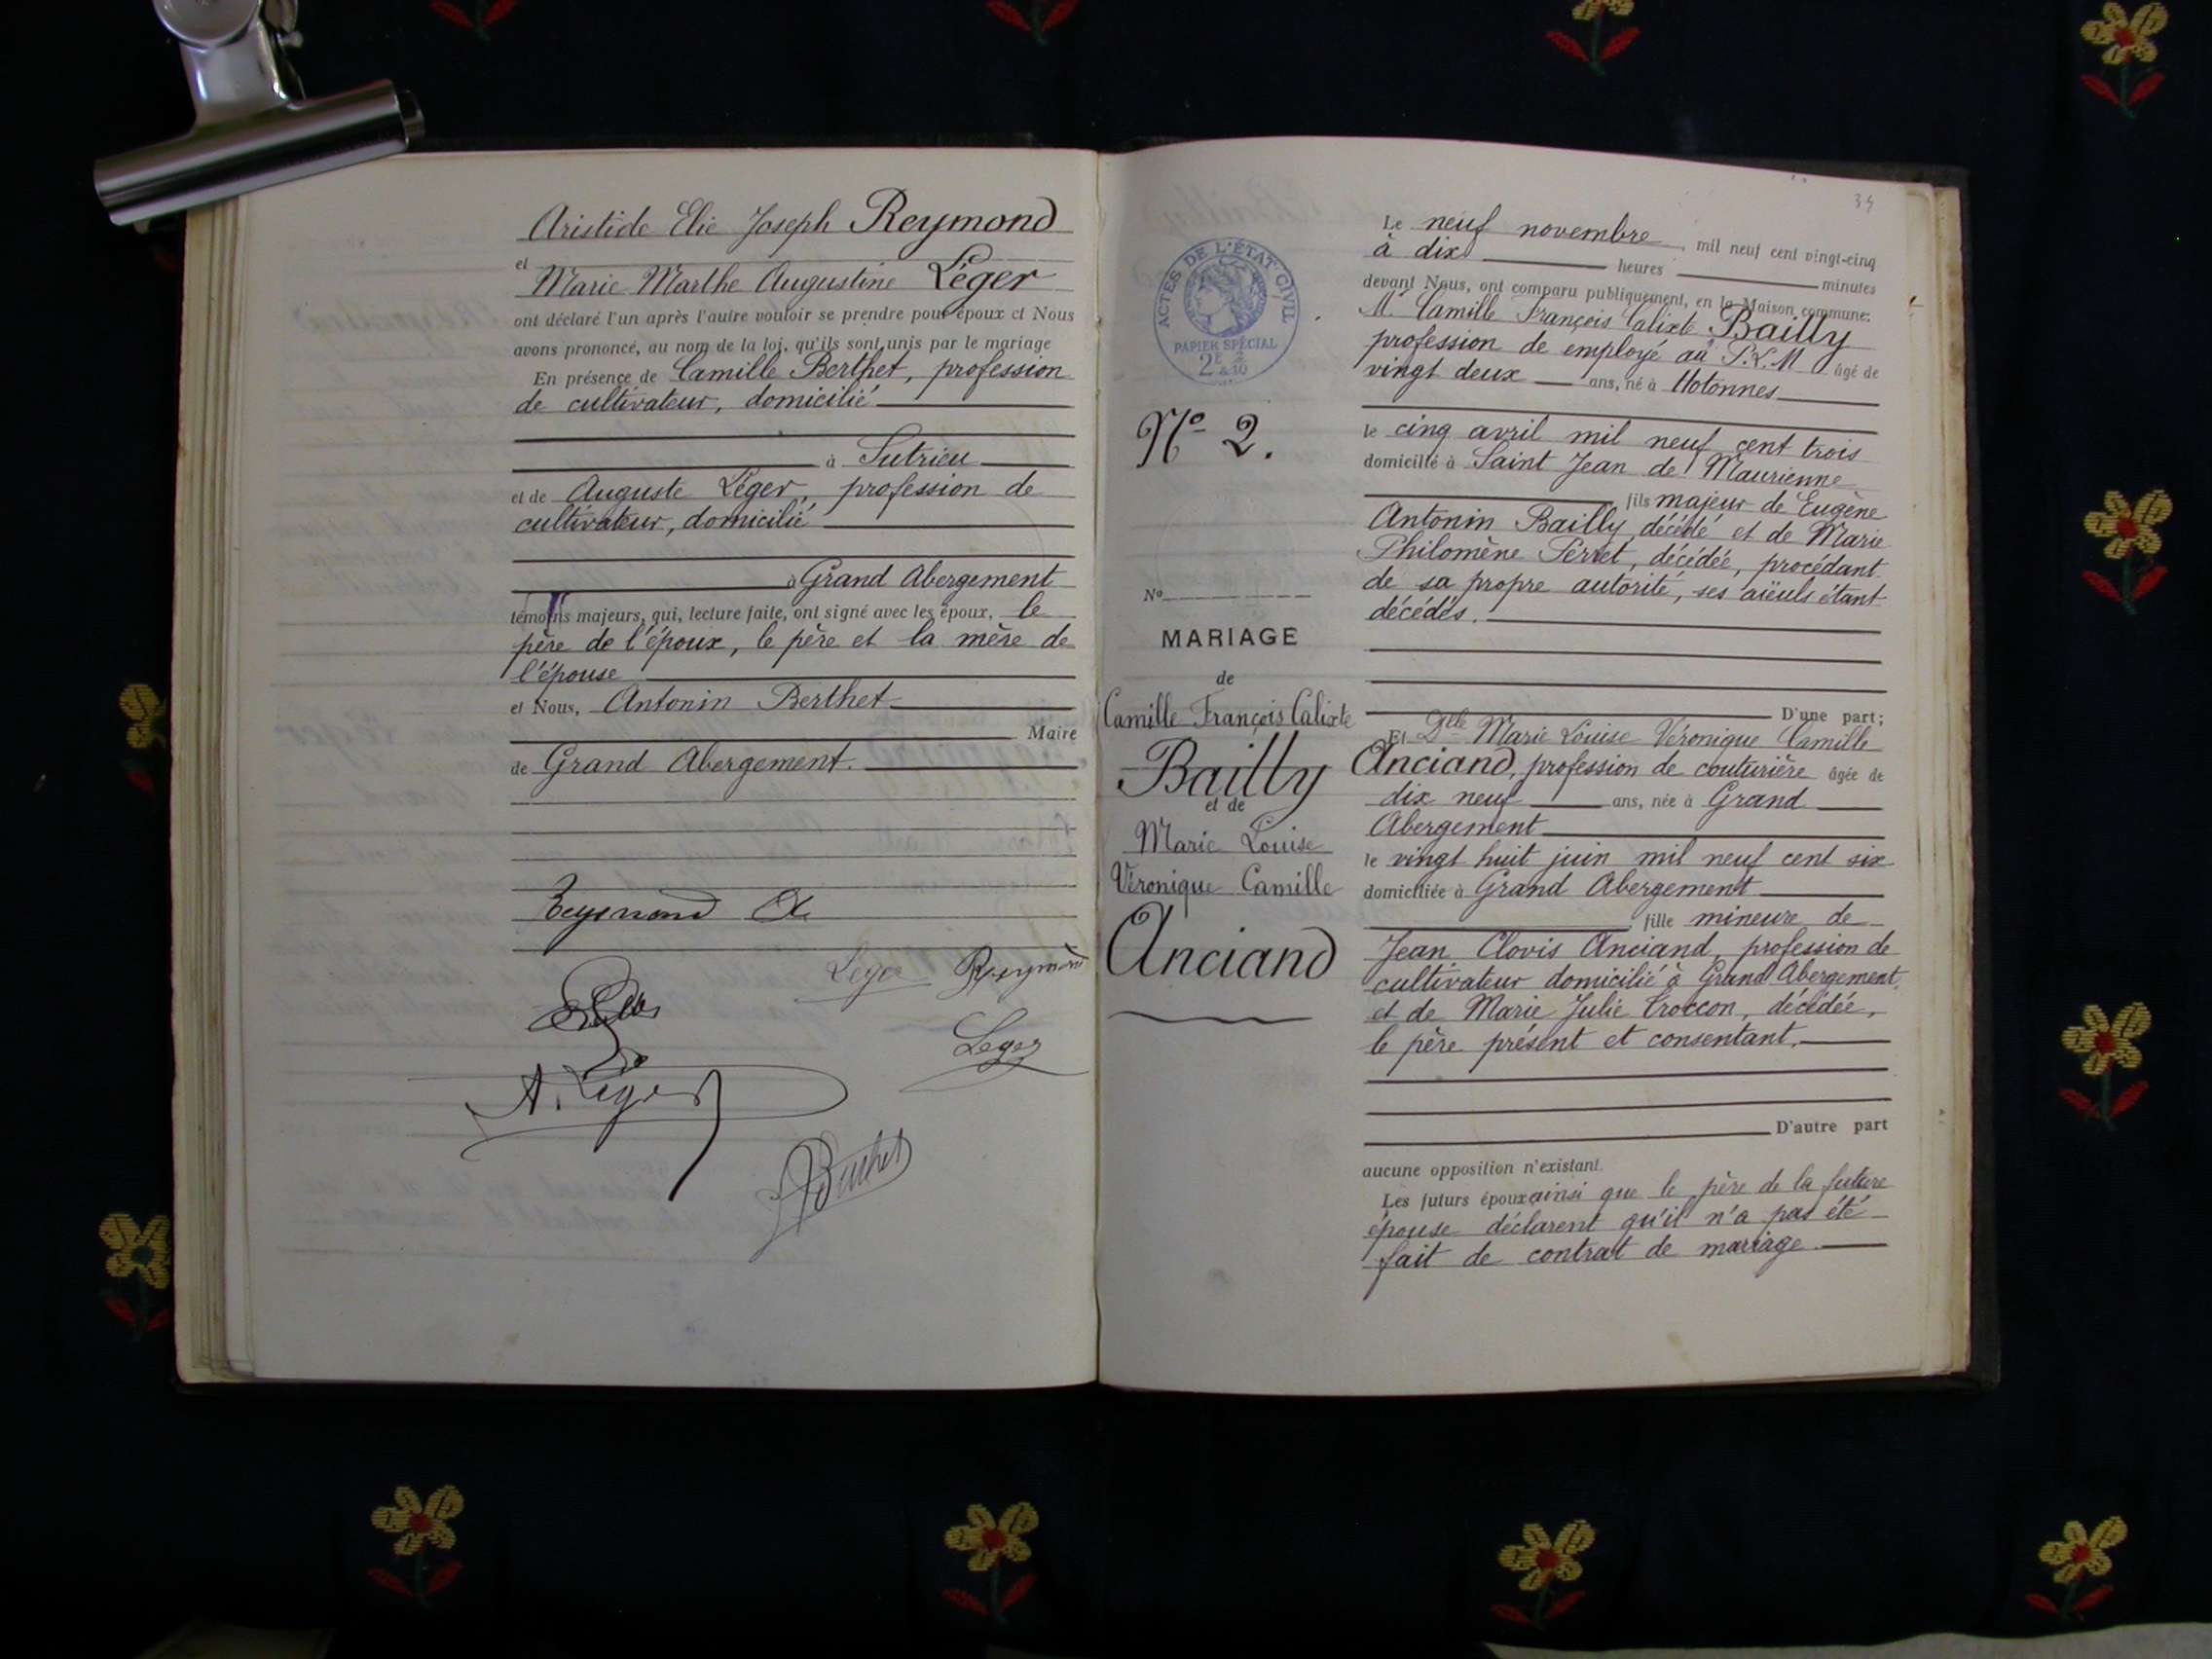 Aristide Elie Joseph Reymond
et
Marie Marthe Augustine Léger
ont déclaré l'un après l'autre vouloir se prendre pour époux et Nous
avons prononcé, au nom de la loi, qu'ils sont unis par le mariage
En présence de Camille Berthet, profession
de cultivateur, domicilié
à Sutrieu
et de Auguste Léger, profession de
cultivateur, domicilié
à Grand Abergement
témoins majeurs, qui, lecture faite, ont signé avec les époux, le
père de l'époux, le père et la mère de
l'épouse
et Nous, Antonin Berthet
Maire
de Grand Abergement.
Reymond A
Leger Reymond
Leger
A. Léger
Berthet
34
ACTES DE L'ÉTAT CIVIL
PAPIER SPÉCIAL
N° 2.
N°
MARIAGE
de
Camille François Calixte
Bailly
et de
Marie Louise
Véronique Camille
Anciand
Le neuf novembre, mil neuf cent vingt-cinq
à dix heures minutes
devant Nous, ont comparu publiquement, en la Maison commune:
M. Camille François Calixte Bailly
profession de employé au P.L.M âgé de
vingt deux ans, né à Hotonnes
le cinq avril mil neuf cent trois
domicilié à Saint Jean de Maurienne
fils majeur de Eugène
Antonin Bailly, décédé et de Marie
Philomène Perret, décédée, procédant
de sa propre autorité, ses aïeuls étant
décédés.
D'une part;
Et Dlle Marie Louise Véronique Camille
Anciand, profession de couturière âgée de
dix neuf ans, née à Grand
Abergement
le vingt huit juin mil neuf cent six
domiciliée à Grand Abergement
fille mineure de
Jean Clovis Anciand, profession de
cultivateur domicilié à Grand Abergement,
et de Marie Julie Troccon, décédée,
le père présent et consentant.
D'autre part
aucune opposition n'existant.
Les futurs époux ainsi que le père de la future
épouse déclarent qu'il n'a pas été
fait de contrat de mariage.